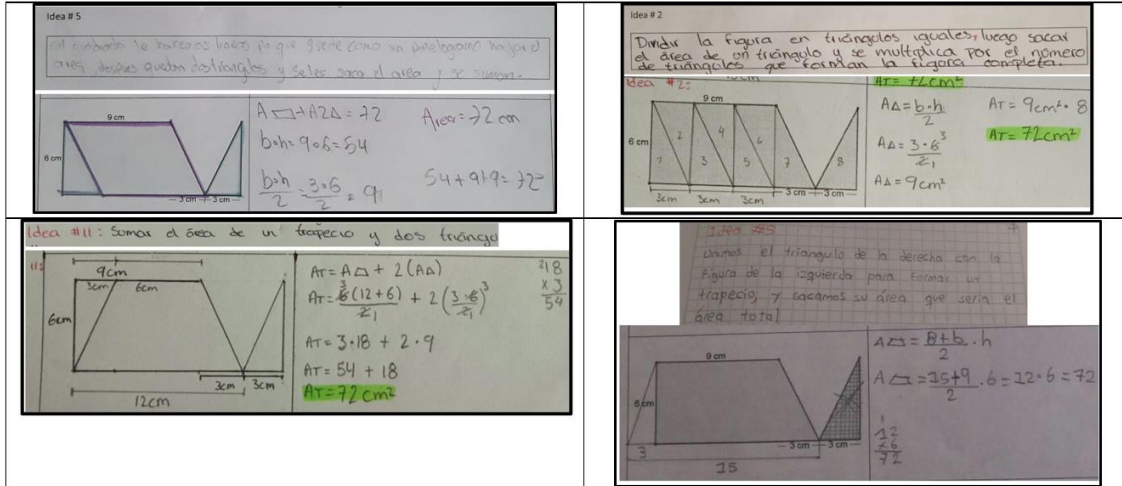 Idea # 5
le hacemos lineas pa que quede como un paralelogramo hayar el
area, despues quedan dos triangulos y se les saca el area y se suman.
9 cm
6 cm
3 cm 3 cm
A ▱ + A2Δ = 72
b•h = 9•6 = 54
b•h/2 = 3•6/2 = 9
Area = 72 cm
54 + 9 + 9 = 72
Idea # 2
Dividir la figura en triángulos iguales, luego sacar
el área de un triángulo y se multiplica por el número
de triángulos que forman la figura completa.
Idea #2:
AT = 72cm²
9 cm
6 cm
1 2 3 4 5 6 7 8
3 cm 3 cm
3cm 3cm 3cm
AΔ = b•h/2
AΔ = 3•6/2
3
1
AΔ = 9cm²
AT = 9cm² • 8
AT = 72cm²
Idea #11: Sumar el área de un trapecio y dos triángu
11:
9cm
3cm 6cm
6cm
3cm 3cm
12cm
AT = A⏢ + 2(AΔ)
AT = 6(12+6)/2 + 2(3•6/2)
3
1
3
1
AT = 3•18 + 2•9
AT = 54 + 18
AT = 72cm²
²18
x 3
54
Idea #5
Unimos el triangulo de la derecha con la
figura de la izquierda para formar un
trapecio, y sacamos su área que seria el
área total
9 cm
6 cm
3 cm 3 cm
3
15
A⏢ = B+b/2 . h
A⏢ = 15+9/2 . 6 = 12•6 = 72
1
12
x6
72